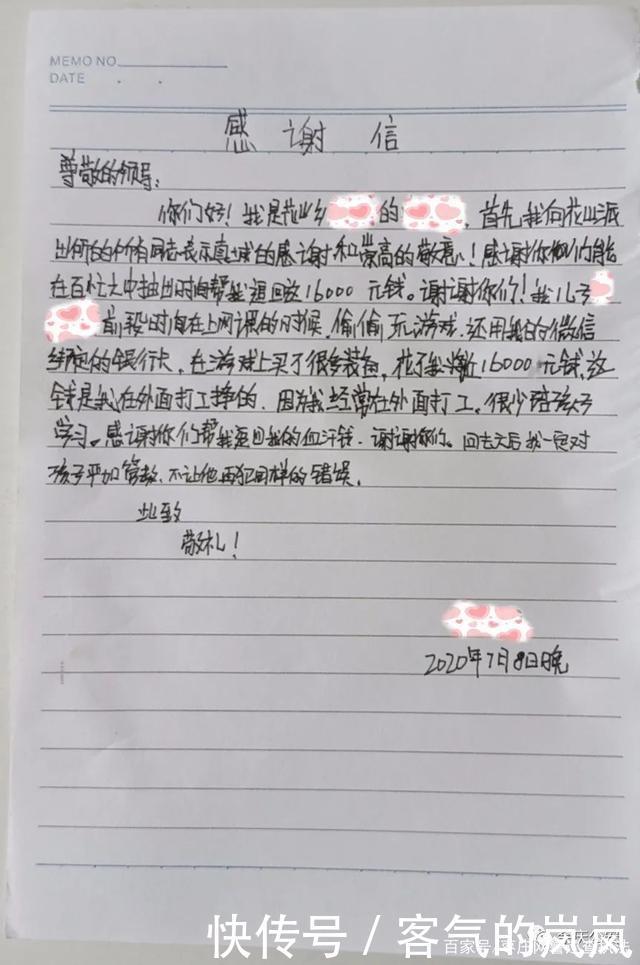 MEMO NO.
DATE . .
感 谢 信
尊敬的领导:
你们好!我是花山乡 的 ,首先,我向花山派
出所的所有同志表示真诚的感谢和崇高的敬意!感谢你们能
在百忙之中抽出时间帮我追回这16000元钱。谢谢你们!我儿子
前段时间在上网课的时候,偷偷玩游戏,还用我的微信
绑定的银行卡,在游戏上买了很多装备,花了我将近16000元钱,这
钱是我在外面打工挣的,因为我经常在外面打工,很少陪孩子
学习。感谢你们帮我追回我的血汗钱,谢谢你们。回去之后我一定对
孩子严加管教,不让他再犯同样的错误。
此致
敬礼!
2020年7月8日晚
快传号 / 客气的岚岚
百家号/